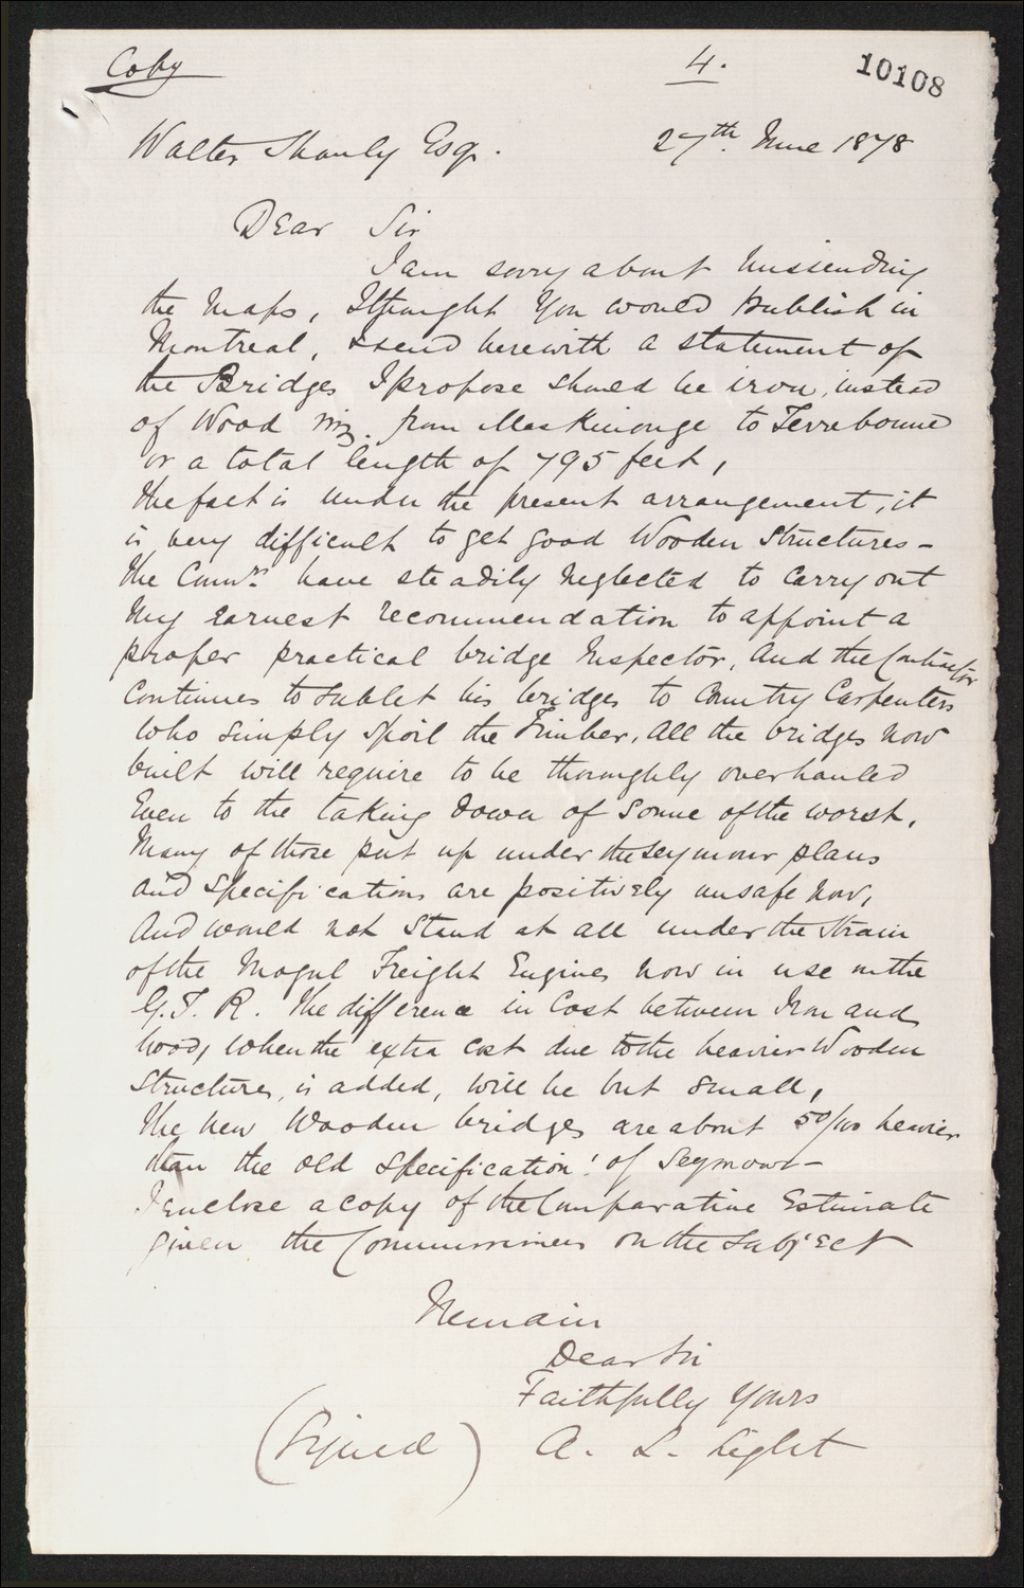 Copy
4.
10108
Walter Shanly Esqr.
27th. June 1878
Dear Sir
I am sorry about missending
the Maps, I thought you would publish in
Montreal, I send herewith a statement of
the Bridges I propose should be iron, instead
of Wood viz. from Maskinonge to Terrebonne
or a total length of 795 feet,
the fact is under the present arrangement, it
is very difficult to get good Wooden Structures –
the Commrs. have steadily neglected to carry out
my earnest recommendation to appoint a
proper practical bridge Inspector, And the Contractor
continues to sublet his bridges to Country Carpenters
who simply spoil the Timber, All the bridges now
built will require to be thoroughly overhauled
Even to the taking down of some of the worst,
Many of those put up under the Seymour plans
and specifications are positively unsafe now,
And would not stand at all under the strain
of the Mogul Freight Engines now in use on the
G. T. R. The difference in Cost between Iron and
Wood, when the extra cost due to the heavier Wooden
Structures, is added, will be but small,
The new Wooden bridges are about 50/100 heavier
than the old specification! of Seymour –
I enclose a copy of the Comparative Estimate
given the Commissioners on the Subject
I remain
Dear Sir
Faithfully Yours
(Signed) A. L. Light